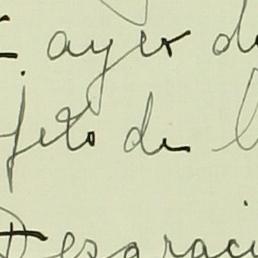 ayer d
feto de l
Desgraci